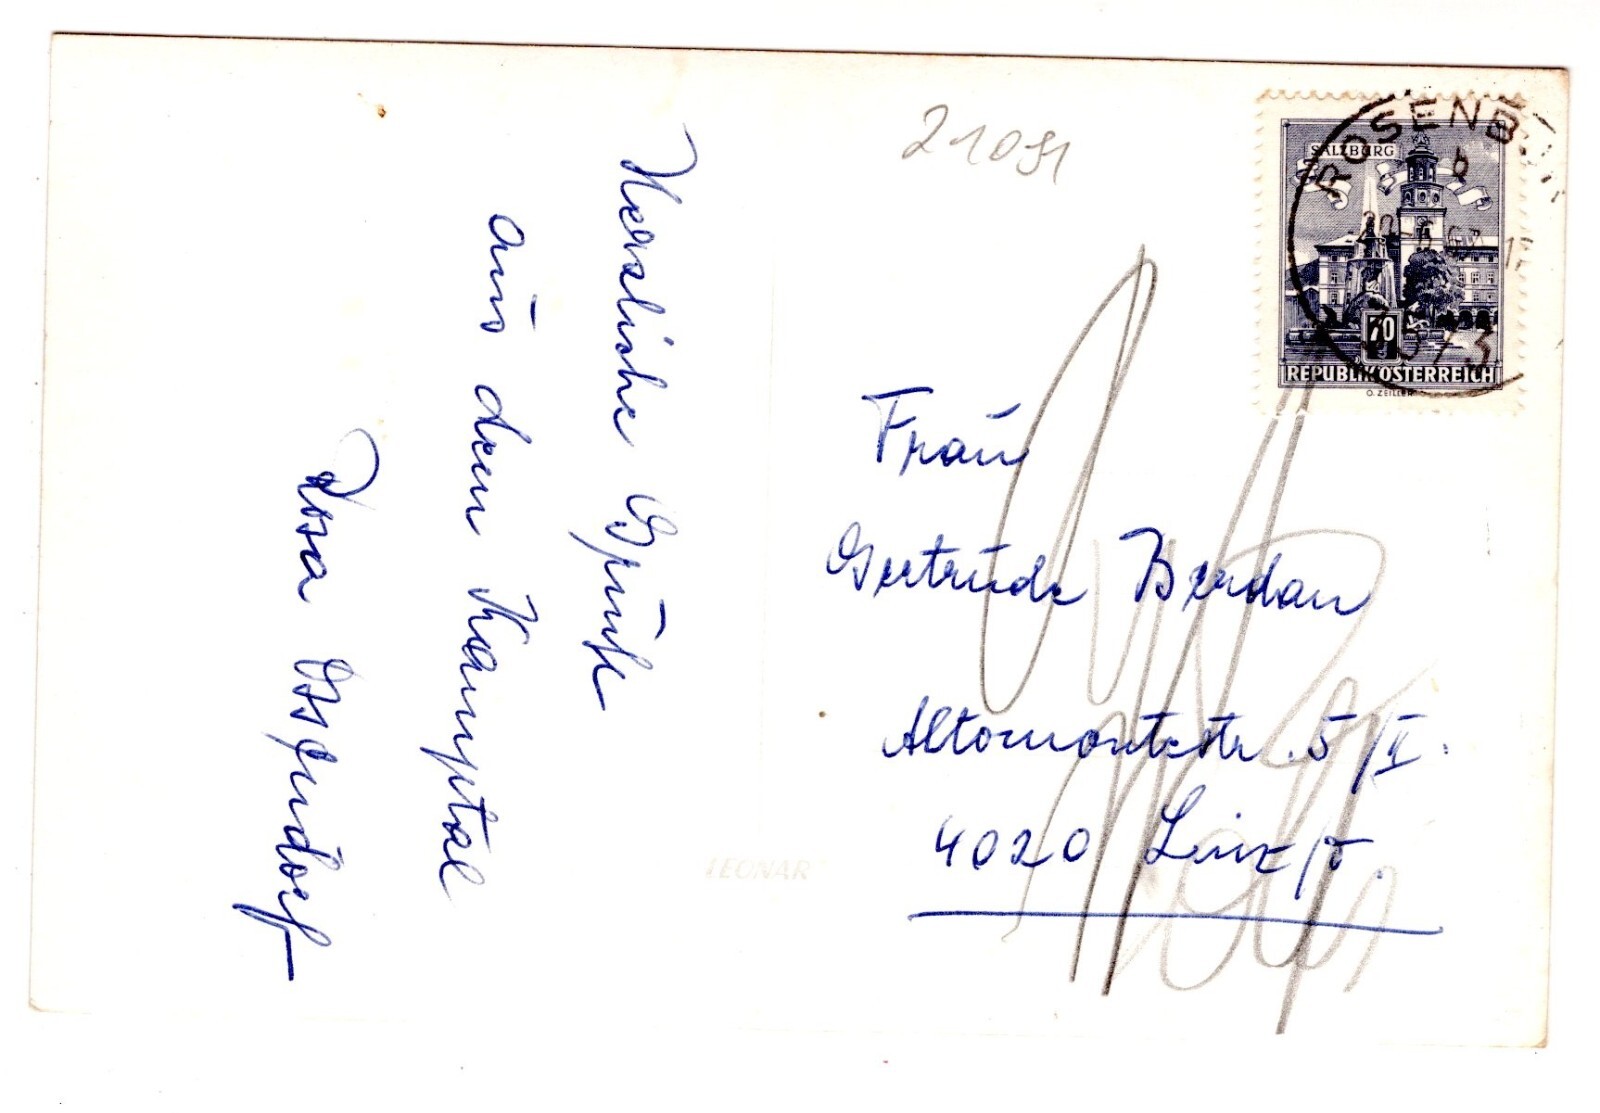 Herzliche Grüße
aus dem Kamptal
Rosa
21091
SALZBURG
70
REPUBLIK ÖSTERREICH
O. ZEILLER
ROSENB
b
3573
Frau
Gertrude Berdan
Altomontestr. 5/II.
4020 Linz/D.
LEONAR